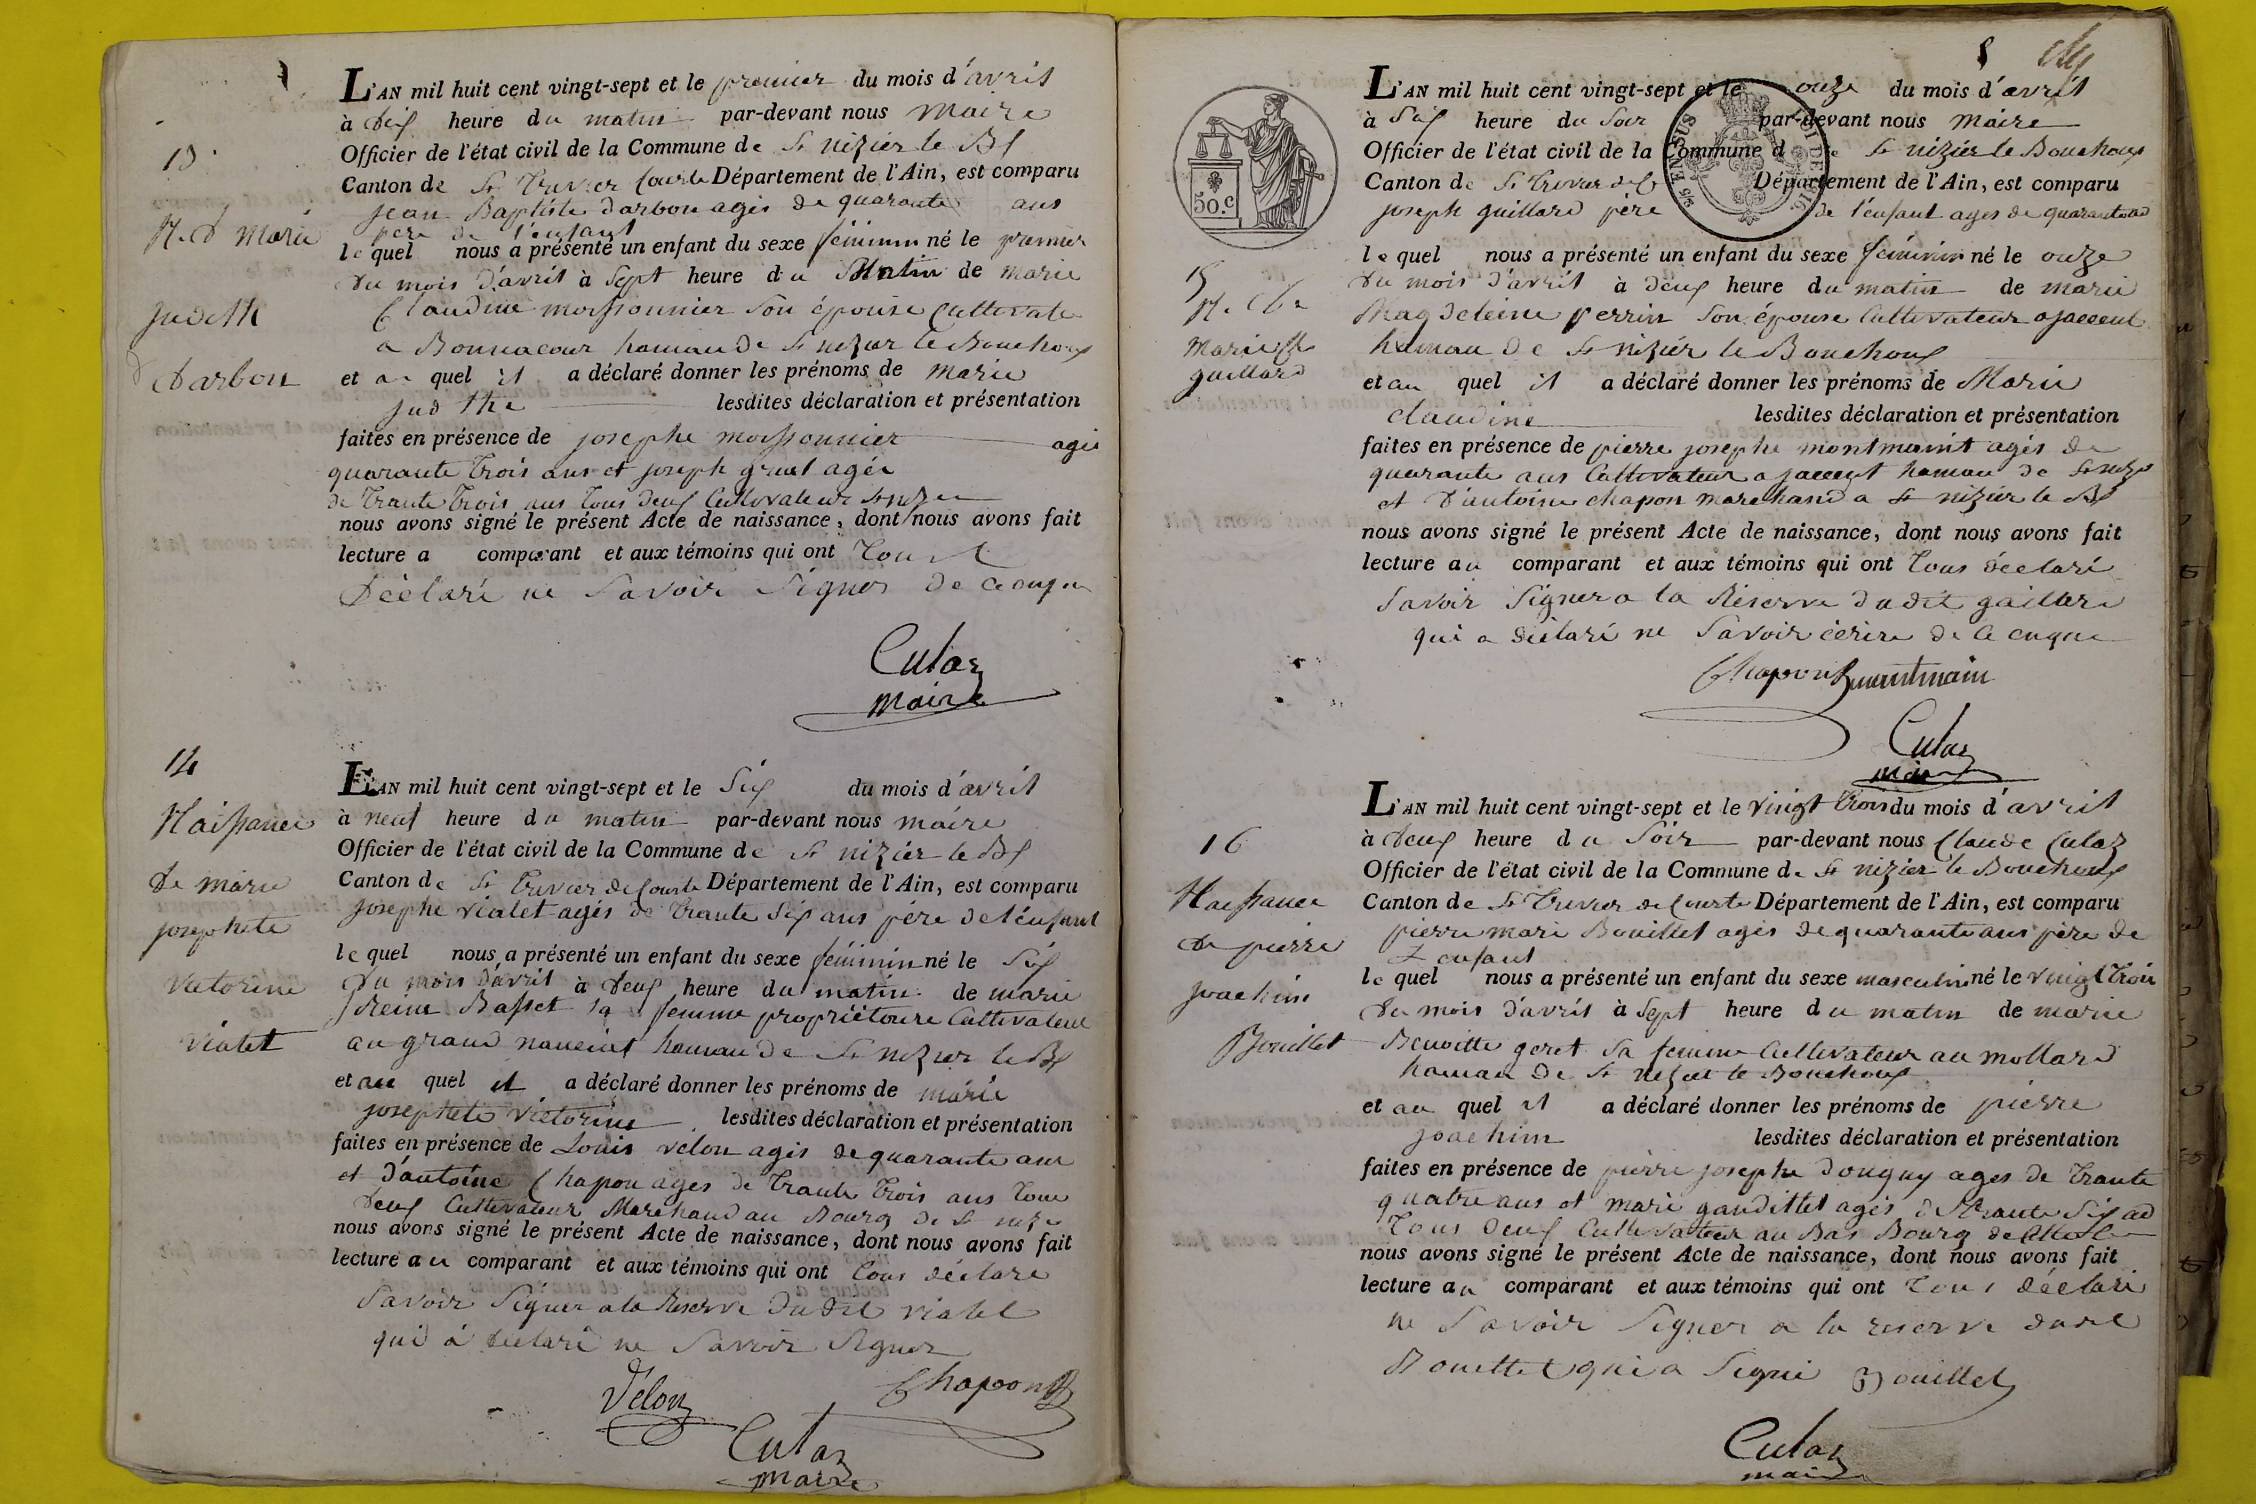 13
N. d Marie
Judeth
Darbon
L'AN mil huit cent vingt-sept et le premier du mois d'avril
à dix heure du matin par-devant nous maire
Officier de l'état civil de la Commune de St nizier le Bx
Canton de St Trivier Courte Département de l'Ain, est comparu
jean Baptiste darbon agés de quarante ans
père de l'enfant
lequel nous a présenté un enfant du sexe féminin né le premier
du mois d'avril à sept heure du matin de marie
Claudine moissonnier son épouse Cultivate
a Bonnacour hamau de St nizier le Bouchoux
et au quel il a déclaré donner les prénoms de marie
judthe lesdites déclaration et présentation
faites en présence de josephe moissonnier agés
quarante trois ans et joseph gruel agée
de trante trois ans tous deux Cultivateur St nizier
nous avons signé le présent Acte de naissance, dont nous avons fait
lecture a comparant et aux témoins qui ont tous
déclaré ne savoir signer de ce enquis
Culaz
maire
14
Naissance
de marie
josephete
victorine
vialet
L'AN mil huit cent vingt-sept et le six du mois d'avril
à neuf heure du matin par-devant nous maire
Officier de l'état civil de la Commune de St nizier le Bx
Canton de St Trivier de Courte Département de l'Ain, est comparu
josephe vialet agés de trante six ans père de l'enfant
lequel nous a présenté un enfant du sexe féminin né le six
du mois d'avril à deux heure du matin de marie
Reine Basset sa femme propriétoire Cultivateur
au grand hamau de St nizier le Bx
et au quel il a déclaré donner les prénoms de marie
josephete victorine lesdites déclaration et présentation
faites en présence de Louis velon agés de quarante ans
et d'antoine Chapon agés de trante trois ans tous
deux Cultivateur Marchand au Bourg de St nizier
nous avons signé le présent Acte de naissance, dont nous avons fait
lecture au comparant et aux témoins qui ont tous déclaré
savoir signer a la Réserve dudit vialet
qui à déclaré ne savoir signer
Velon Chapon
Culaz
maire
5
50.C
15
N. de
Marie Cl
gaillard
L'AN mil huit cent vingt-sept et le onze du mois d'avril
à six heure du soir par-devant nous maire
Officier de l'état civil de la Commune de St nizier le Bouchoux
Canton de St Trivier de C Département de l'Ain, est comparu
joseph guillard père de l'enfant ages de quarante
lequel nous a présenté un enfant du sexe féminin né le onze
du mois d'avril à deux heure du matin de marie
Magdeleine perrin son épouse Cultivateur a jaccent
hamau de St nizier le Bouchoux
et au quel il a déclaré donner les prénoms de Marie
claudine lesdites déclaration et présentation
faites en présence de pierre josephe montmaint agés de
quarante ans Cultivateur a jaccent hamau de St nizier
et d'antoine chapon marchand a St nizier le Bx
nous avons signé le présent Acte de naissance, dont nous avons fait
lecture au comparant et aux témoins qui ont tous déclaré
savoir signer a la Réserve dudit gaillard
qui a déclaré ne savoir écrire de ce enquis
Chapon montmain
Culaz
maire
16
Naissance
de pierre
joachim
Bouillet
L'AN mil huit cent vingt-sept et le vingt trois du mois d'avril
à deux heure du soir par-devant nous Claude Culaz
Officier de l'état civil de la Commune de St nizier le Bouchoux
Canton de St Trivier de Courte Département de l'Ain, est comparu
pierre marie Bouillet agés de quarante ans père de
L'enfant
lequel nous a présenté un enfant du sexe masculin né le vingt trois
du mois d'avril à sept heure du matin de marie
Benoitte geret sa femme Cultivateur au mollard
hamau de St nizier le Bouchoux
et au quel il a déclaré donner les prénoms de pierre
joachim lesdites déclaration et présentation
faites en présence de pierre josephe dougny ages de trante
quatre ans et marie gandillet agés de trante six
tous deux Cultivateur au Bas Bourg de
nous avons signé le présent Acte de naissance, dont nous avons fait
lecture au comparant et aux témoins qui ont tous déclaré
ne savoir signer a la reserve dudit
Bouillet qui a signé Bouillet
Culaz
maire